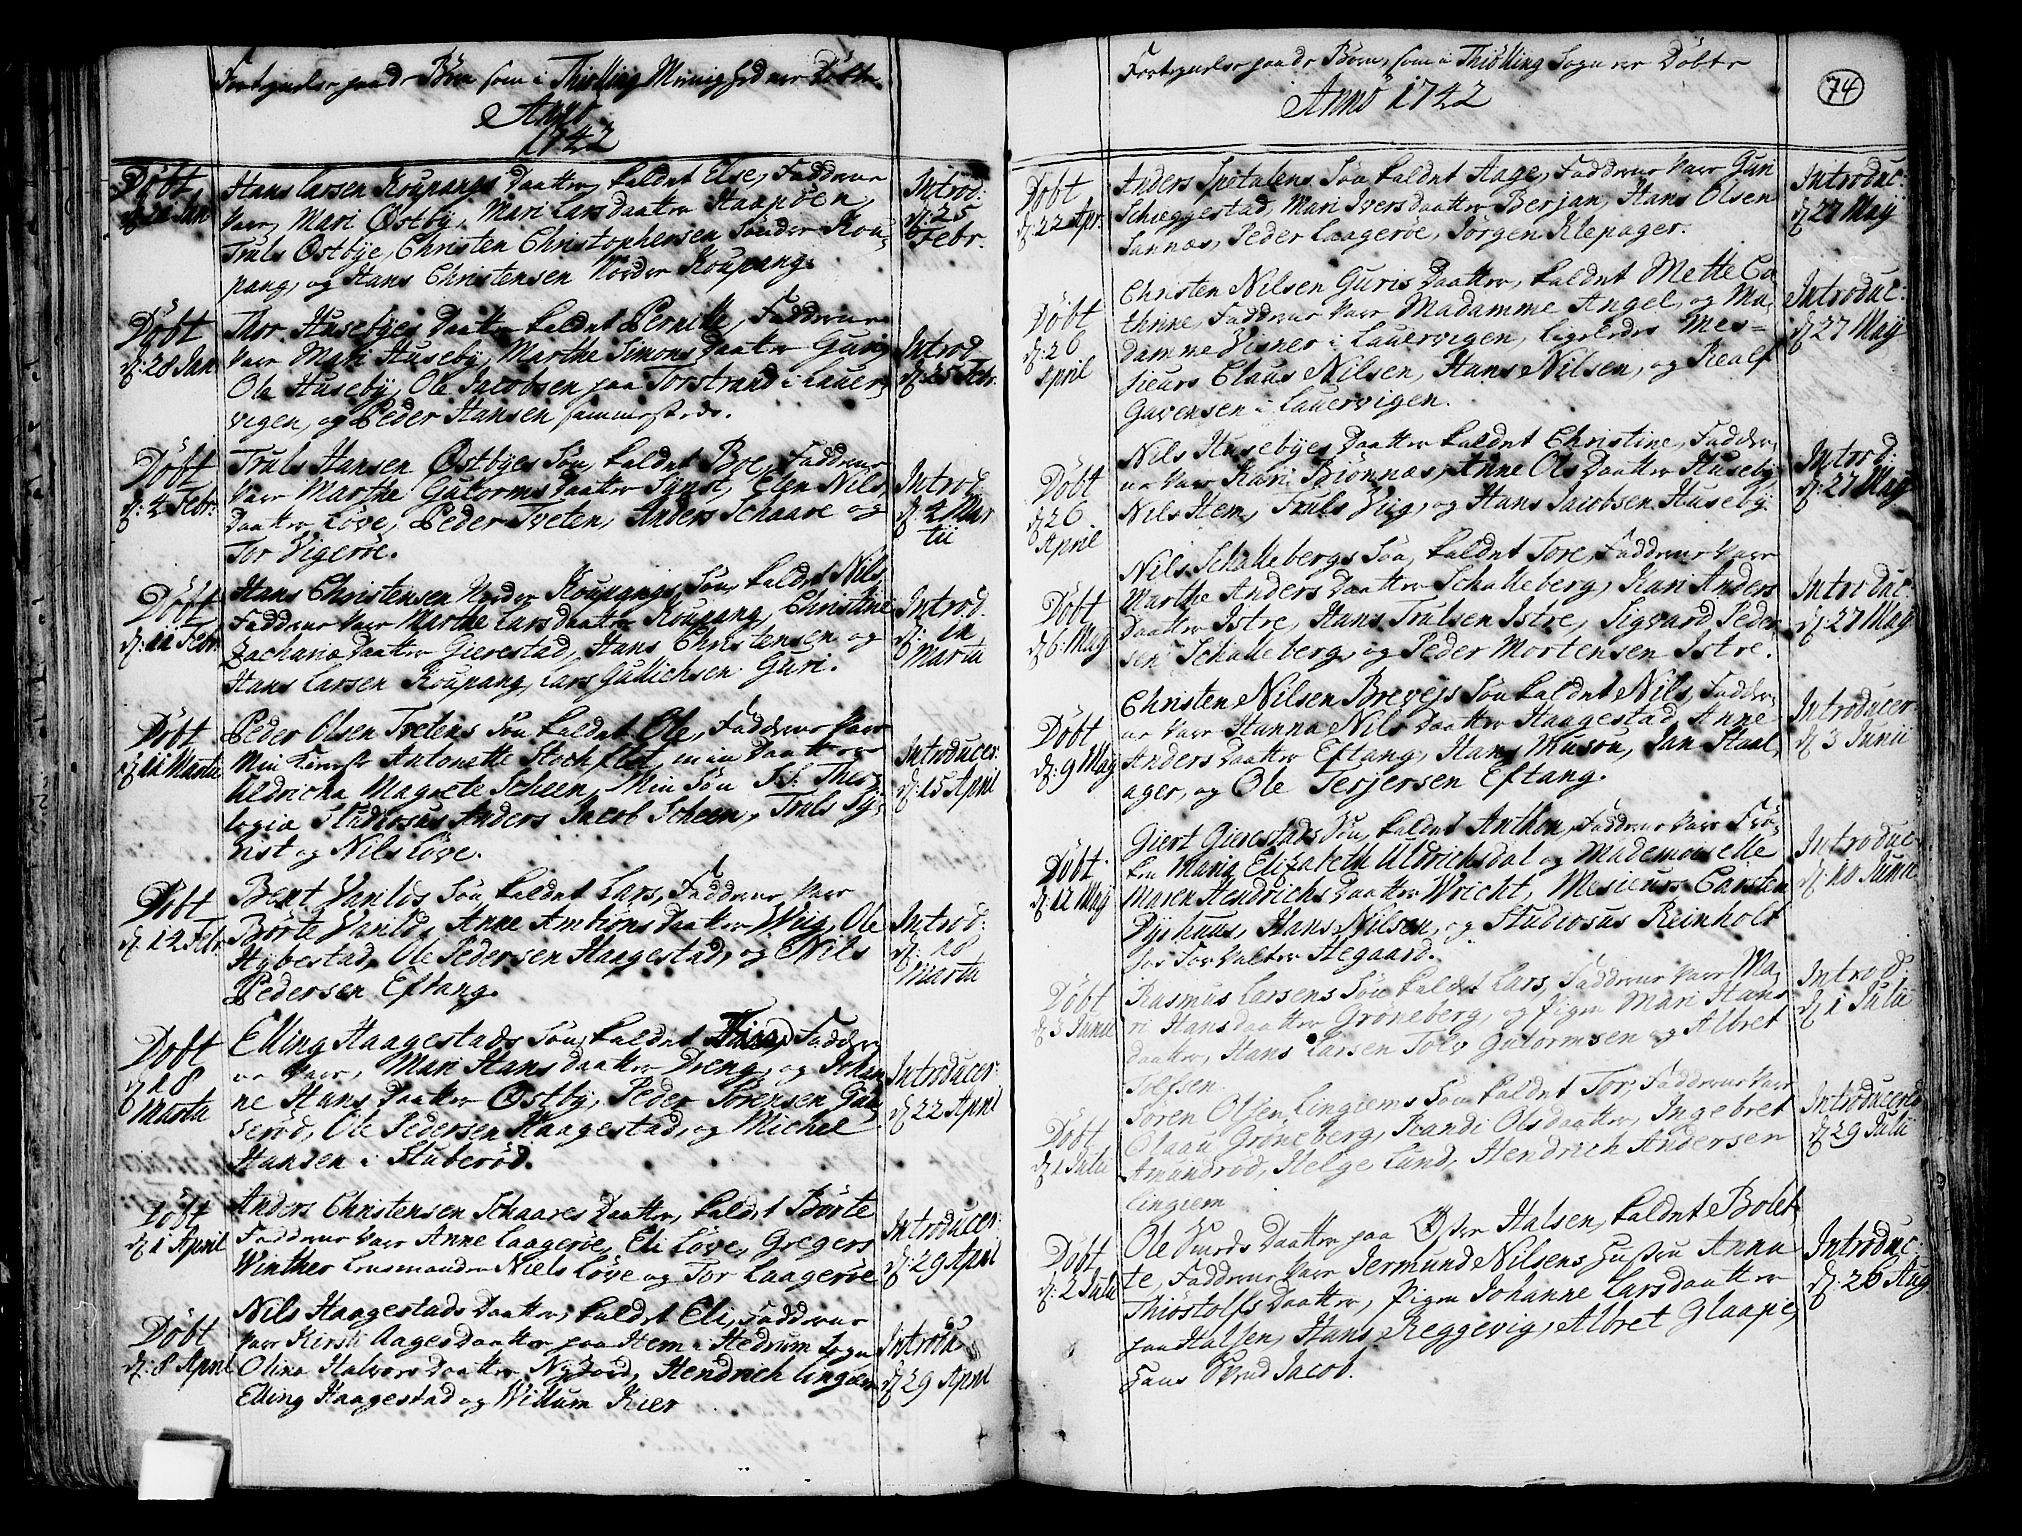 Fortegnelse paa de Børn som i Thiølling Menighed ere Døbte
Anno
1742
Døbt
Hans Larsen Koupangs Daatter, kaldet Else, Faddrene
Vare, Mari Østby, Mari Larsdaatter Haapöen,
Truls Østbye, Christen Christophersen Sönder Kou-
pang, og Hans Christensen Norder Koupang.
Introd:
d: 25
Febr.
Døbt
d: 28 Jan
Thor Husebyes Daatter kaldet Pernelle, Faddrene
Vare Mari Huseby, Marthe Simons Daatter Guri
Ole Huseby, Ole Jacobsen paa Torstrand i Lauer-
vigen, og Peder Hansen sammesteds.
Introd
d: 25 Febr.
Døbt
d: 4 Febr:
Truls Hansen Østbyes Søn, kaldet Boe, Faddrene
Vare Marthe Gulorms Daatter Synst, Elen Nils
Daatter Löve, Peder Tveten, Anders Schaare og
Tor Vigeröe.
Introd
d: 4 Mar
tii
Døbt
d: 11 Febr.
Hans Christensen Norder Koupangs Søn, kaldet Nils,
Faddrene Vare Marthe Lars daatter Koupang, Christine
Zachariæ Daatter Gierestad, Hans Christensen og
Hans Larsen Koupang, Lars Gullichsen Guri.
Introd.
d: 11
Martii
Døbt
d: 11 Martii
Peder Olsen Tvetens Søn kaldet Ole, Faddrene Vare
Min Kierest Antonette Stochflet, min Daatter
Uldricha Magrete Scheen, Min Søn SS. Theo-
logiæ Studiosus Anders Jacob Scheen, Truls Sy-
rist og Nils Löve.
Introducer:
d: 15 April
Døbt
d: 14 Febr
Bent Vanlds Søn kaldet Lars, Faddrene Vare
Börte Vanlds, Anne Ambiörs Daatter Wiig, Ole
Hybestad, Ole Pedersen Haagestad, og Nils
Pedersen Eftang.
Introd:
d: 18
Martii
Døbt
d: 18
Martii
Elling Haagestads Søn, kaldet Faddre-
ne Vare, Mari Hans daatter Dreng, og Johan
ne Hans Daatter Østby, Peder Sörensen Gun-
seröd, Ole Pedersen Haagestad, og Michel
Hansen i Stuberöd.
Introducer:
d: 22 April
Døbt
d: 1 April
Anders Christensen Schaares Daatter, kaldet Börte
Faddrene Vare Anne Laageröe, Eli Löve, Gregers
Winther Lensmanden Niels Löve og Tor Laageröe
Introducer:
d: 29 April
Døbt
d: 8 April
Nils Haagestads Daatter, kaldet Eli, Faddrene
Vare Kirsti Aages Daatter paa Hem i Hedrum Sogn
Olina Halvors Daatter Nyord, Hendrich Lingum
Elling Haagestad og Willum Kier
Introdu
d: 29 April
Fortegnelse paa de Børn, som i Thiölling Sogn ere Döbte
Anno 1742
74
Døbt
d: 22 Apr.
Anders Spetalens Søn kaldet Aage, Faddrene Vare Gun
Schæggestad, Mari Ivers daatter Berjan, Hans Olsen
Sannæs, Peder Laageröe, Jörgen Klepager.
Introduc:
d: 27 Maij
Døbt
d: 26
April
Christen Nilsen Guris Daatter, kaldet Mette Ca
thrine, Faddrene Vare Madamme Angel, og Ma-
damme Visner i Lauervigen, ligeledes Mes-
sieurs Claus Nilsen, Hans Nilsen, og Realf
Gavensen i Lauervigen.
Introduc:
d: 27 Maij
Døbt
d: 26
April
Nils Husebyes Daatter kaldet Christine, Faddre-
ne Vare Kari Biönnæs, Anne Ols Daatter Huseby,
Nils Hem, Truls Viig, og Hans Jacobsen Huseby
Introd:
d: 27 Maij
Døbt
d: 6 Maij
Nils Schallebergs Søn, kaldet Tore, Faddrene Vare
Marthe Anders Daatter Schalleberg, Kari Anders
Daatter Istre, Hans Trulsen Istre, Sigvard Peder
sen Schalleberg, og Peder Mortensen Istre.
Introduc:
d: 27 Maij
Døbt
d: 9 Maij
Christen Nilsen Breveis Søn kaldet Nils, Faddre-
ne Vare Hanna Nils Daatter Haagestad, Anne
Anders Daatter Eftang, Hans Musou, Jan Staal-
ager, og Ole Terjersen Eftang.
Introducer:
d: 3 Junii
Døbt
d: 12 Maij
Giert Gierestads Søn, kaldet Anthon, Faddrene Vare Frö-
ken Maria Elizabeth Uldrichsdal og Mademoiselle
Maren Hendrichs Daatter Wricht, Mesieurs Carsten
Pyshuus, Hans Nilsen, og Studiosus Reinholt
hos Forvalter Hegaard.
Introduc:
d: 10 Junii
Døbt
d: 3 Junii
Rasmus Larsens Søn kaldet Lars, Faddrene Vare Ma
ri Hansdaatter Gröneberg, og Pigen Mari Hans
daatter, Hans Larsen Tolv Gulormsen og Albret
Tolfsen
Introd.
d: 1 Julii
Døbt
d: 1 Julii
Sören Olsen Lingiems Søn kaldet Tor, Faddrene Vare
Olaau Gröneberg, Randi Ols daatter, Ingebret
Amundröd, Helge Lund, Hendrich Andersen
Lingiem
Introducered
d: 29 Julii
Døbt
d: 2 Julii
Ole Smeds Daatter paa Øster Halsen, kaldet Bolet
te, Faddrene Vare Jermund Nilsens Hustru Anna
Thiöstolfs Daatter, Pigen Johanne Lars daatter
paa Halsen, Hans Reggevig, Albret Glaapie,
Hans Svend Jacob.
Introduc:
d: 26 Aug